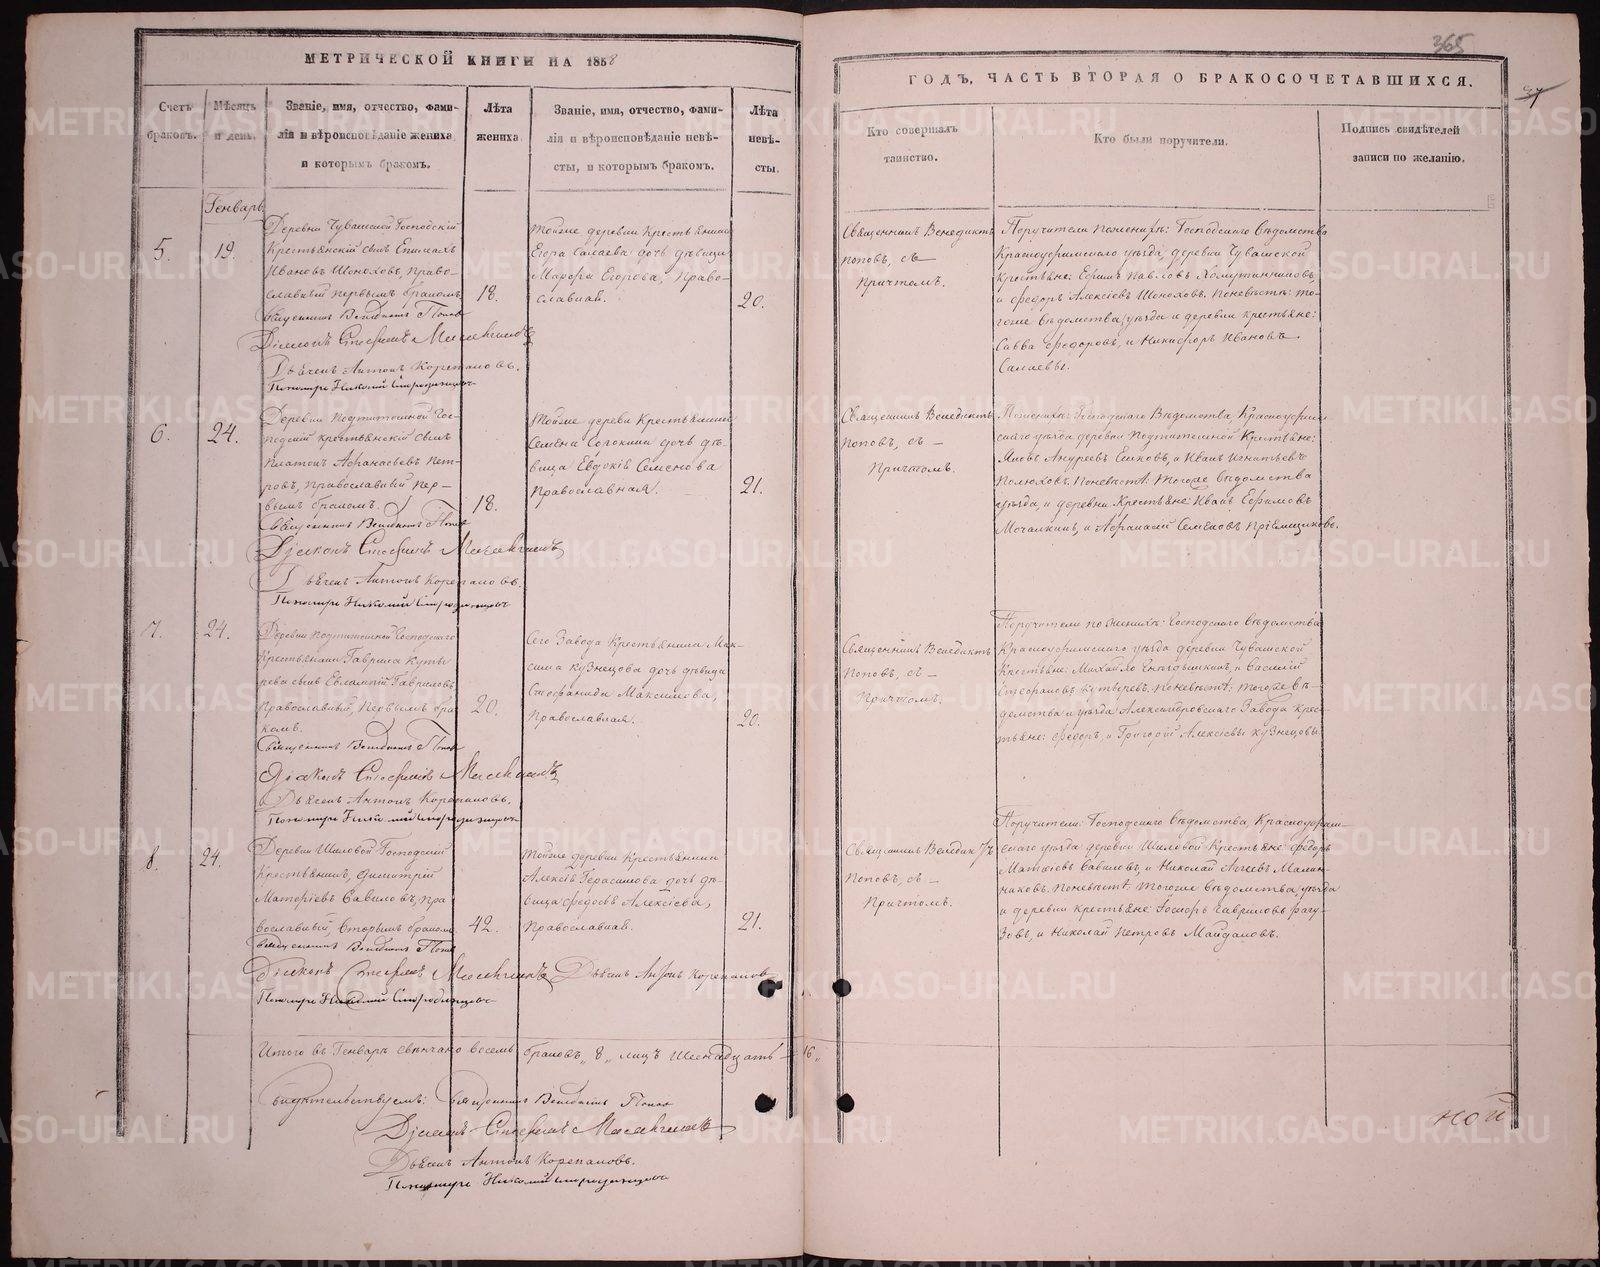 МЕТРИЧЕСКОЙ КНИГИ НА 1858
ГОДЪ, ЧАСТЬ ВТОРАЯ О БРАКОСОЧЕТАВШИХСЯ.
365
37
Счетъ
браковъ.
Мѣсяцъ
и день.
Званіе, имя, отчество, фами-
лія и вѣроисповѣданіе жениха,
и которымъ бракомъ.
Лѣта
жениха.
Званіе, имя, отчество, фами-
лія и вѣроисповѣданіе невѣ-
сты, и которымъ бракомъ.
Лѣта
невѣ-
сты.
Кто совершалъ
таинство.
Кто были поручители.
Подпись свидѣтелей
записи по желанію.
Генварь.
5.
19.
Деревни Чувашской Господскій
Крестьянскій сынъ Епимахъ
Ивановъ Шоноховъ, право-
славный первымъ бракомъ
18.
Священникъ Венедиктъ Поповъ
Діаконъ Стефанъ
Дьячекъ Антонъ Корепановъ.
Пономарь Николай
Тойже деревни Крестьянина
Егора Салаева дочь дѣвица
Марфа Егорова, Право-
славная.
20.
Священникъ Венедиктъ
Поповъ, съ
Причтомъ.
Поручители по женихѣ: Господскаго вѣдомства
Красноуфимскаго уѣзда, деревни Чувашской
крестьяне: Ефимъ Павловъ Хомутинниковъ,
и Федоръ Алексѣевъ Шоноховъ. По невѣстѣ: то-
гоже вѣдомства, уѣзда и деревни крестьяне:
Савва Федоровъ, и Никифоръ Ивановъ
Салаевы.
6.
24.
Деревни Подтитешной Гос-
подскій крестьянскій сынъ
Платонъ Афанасьевъ Пет-
ровъ, Православный пер-
вымъ бракомъ.
18.
Священникъ Венедиктъ Поповъ
Діаконъ Стефанъ
Дьячекъ Антонъ Корепановъ.
Пономарь Николай
Тойже дереви Крестьянина
Семена Сорокина дочь дѣ-
вица Евдокія Семенова
Православная.
21.
Священникъ Венедиктъ
Поповъ, съ
Причтомъ.
По женихѣ: Господскаго Вѣдомства Красноуфим-
скаго уѣзда деревни Подтитешной Крестьяне:
Яковъ Андреевъ и Иванъ Игнатьевъ
По невѣстѣ: Тогоже вѣдомства
уѣзда, и деревни Крестьяне Иванъ Ефимовъ
Мочалкинъ, и Афанасій Семеновъ Пріемщиковъ.
7.
24.
Деревни Подтитешной Господскаго
Крестьянина Гаврила Куты
рева сынъ Евлампій Гавриловъ
Православный, Первымъ бра
комъ.
20.
Священникъ Венедиктъ Поповъ
Діаконъ Стефанъ
Дьячекъ Антонъ Корепановъ.
Пономарь Николай
Сего Завода Крестьянина Мак-
сима Кузнецова дочь дѣвица
Стефанида Максимова,
Православная.
20.
Священникъ Венедиктъ
Поповъ, съ
Причтомъ.
Поручители по женихѣ: Господскаго вѣдомства
Красноуфимскаго уѣзда деревни Чувашской
Крестьяне: Михайло и Василій
Стефановъ Кутыревъ. По невѣстѣ: тогоже вѣ-
домства и уѣзда Александровскаго Завода Крес-
тьяне: Федоръ, и Григорій Алексѣевы Кузнецовы.
8.
24.
Деревни Шиловой Господскій
Крестьянинъ, Димитрій
Матфіевъ Савиловъ, Пра
вославный, Вторымъ бракомъ
42.
Священникъ Венедиктъ Поповъ
Діаконъ Стефанъ
Дьячекъ Антонъ Корепановъ
Пономарь Николай
Тойже деревни Крестьянина
Алексія Герасимова дочь дѣ-
вица Федосья Алексіева,
Православная.
21.
Священникъ Венедиктъ
Поповъ, съ
Причтомъ.
Поручители: Господскаго вѣдомства, Красноуфим-
скаго уѣзда деревни Шиловой Крестьяне: Федоръ
Матвѣевъ Савиловъ, и Николай Агѣевъ Мален-
никовъ. По невѣстѣ: Тогоже вѣдомства, уѣзда
и деревни крестьяне: Гавриловъ
и Николай Петровъ Майдановъ.
Итого въ Генварѣ свѣнчано восемь браковъ „8„ лицъ Шеснадцать - 16„
Свидѣтельствуемъ: Священникъ Венедиктъ Поповъ
Діаконъ Стефанъ
Дьячекъ Антонъ Корепановъ.
Пономарь Николай
ной
METRIKI.GASO-URAL.RU